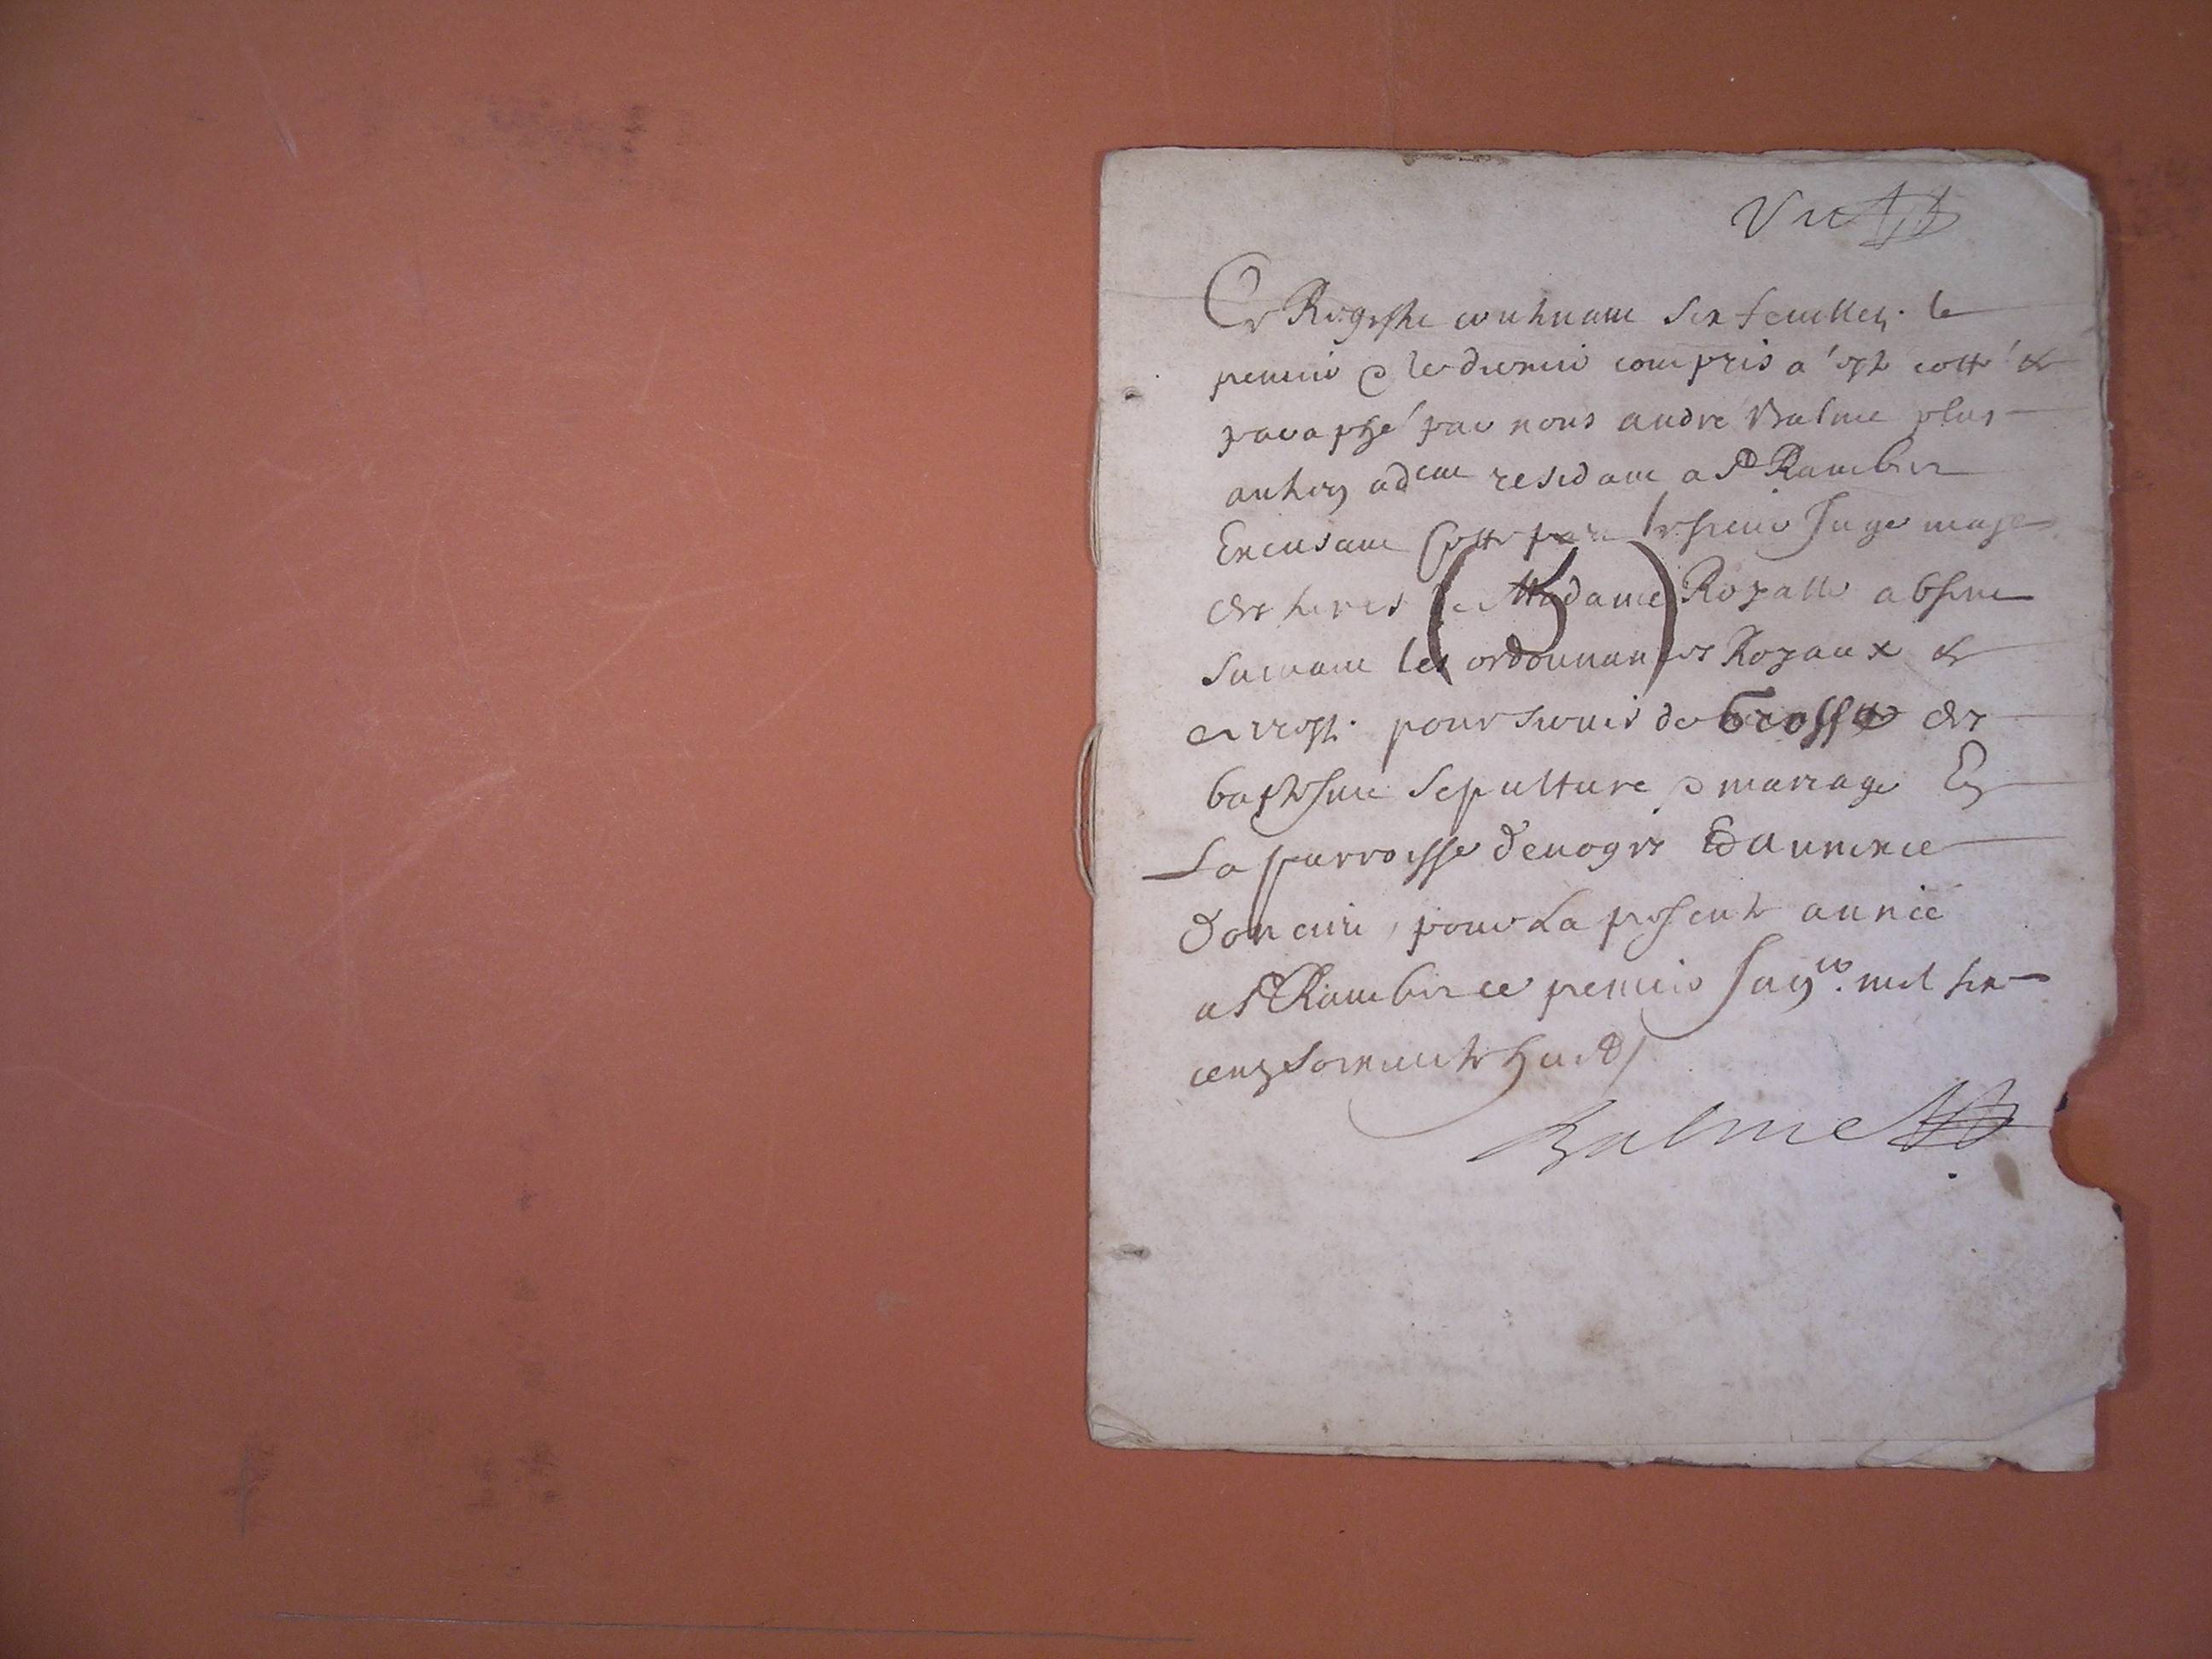 Un
Ce Registre contenant six feuillets le
premier & le dernier compris a esté cotté &
paraphé par nous andré Balme plus
antien adcat residant a St Rambert
Excusant par le sieur Juge maje
des terres de Madame Royalle absent
suivant les ordonnances Royaux &
arrest pour servir de des
baptesme sepulture & mariage En
La parroisse
d'oncieu, pour La presente année
a St Rambert ce premier Janvr. mil six
cents soixante huict
Balme
(5)